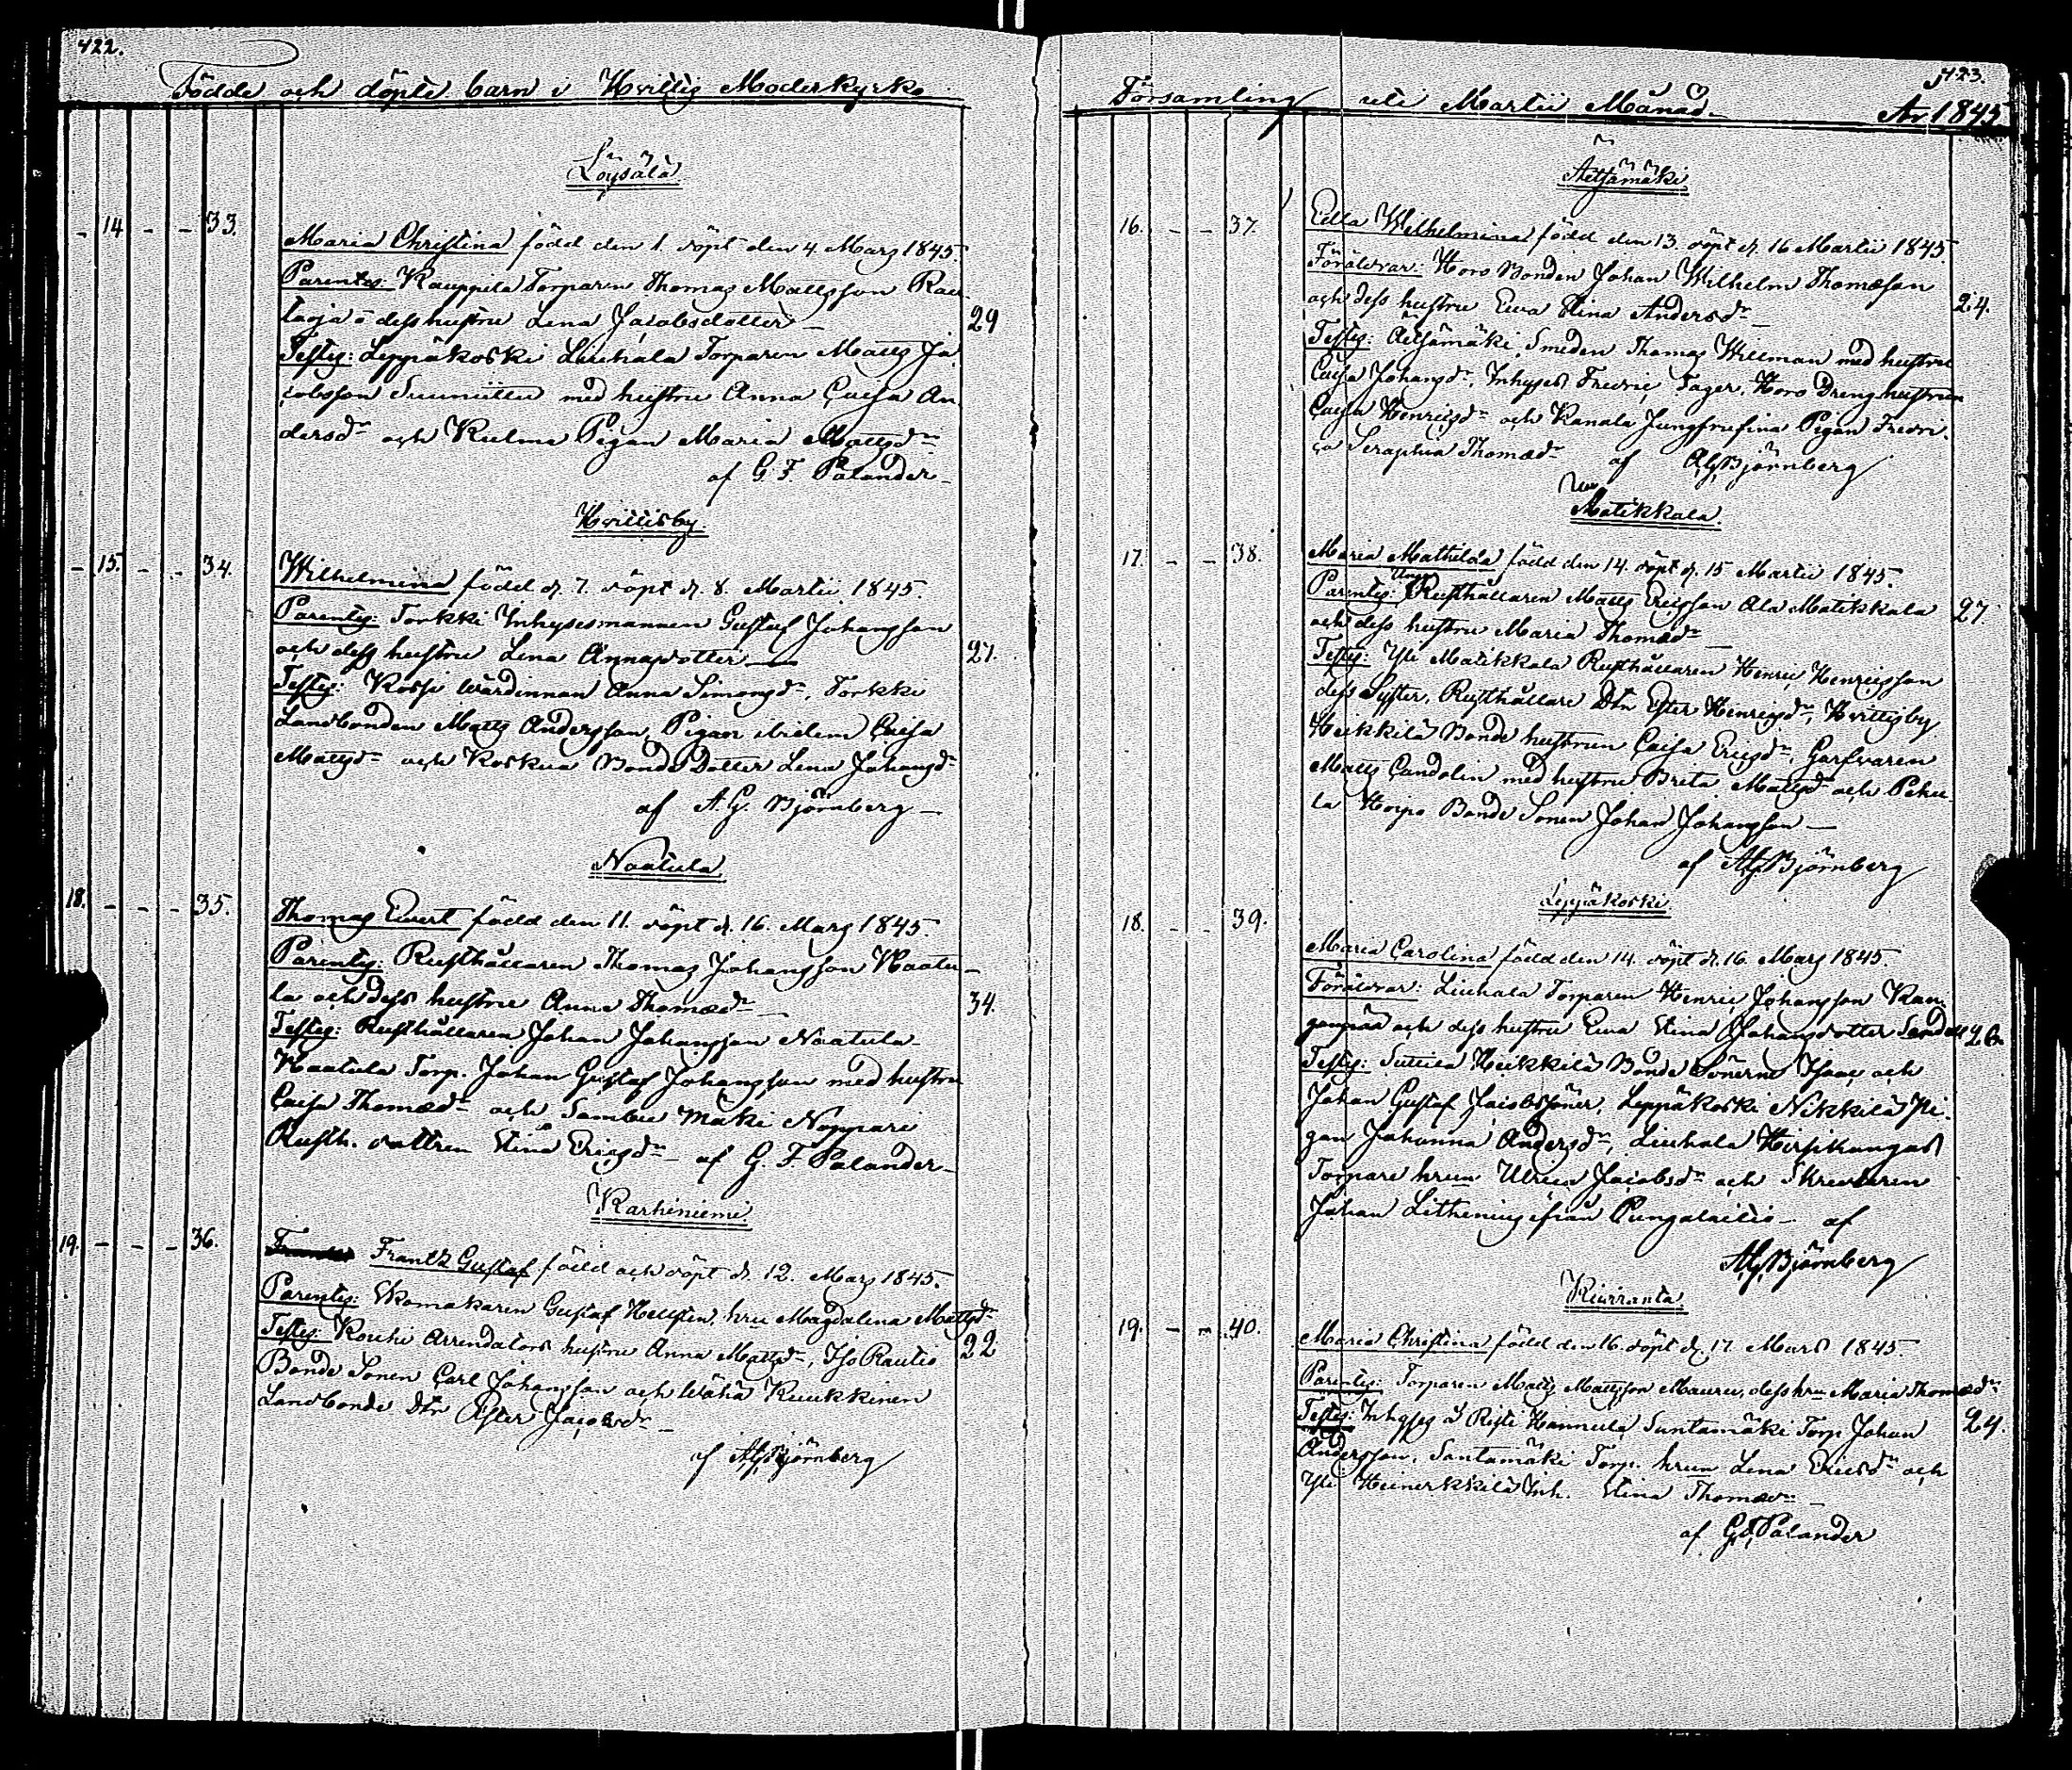 422.
Födde och döpte barn i Hvittis Moderkyrko
Löysälä
14 33. Maria Christina född den 1. döpt den 4 Mars 1845.
Parentes: Kauppila Torparen Thomas Mattsson Rau-
taoja o dess hustru Lena Jacobsdotter 29
Testes: Leppäkoski Liuhala Torparen Matts Ja
cobsson Suuniittu med hustru Anna Caisa An
dersdr och Kulma Pigan Maria Mattsdr
af G F Palander
Hvittisby.
15. 34. Wilhelmina född d. 7. döpt d. 8. Martii 1845.
Parentes: Torkki Inhysesmannen Gustaf Johansson
och dess hustru Lena Annasdotter 27.
Testes: Kossi Wärdinnan Anna Simonsdr, Torkki
Landbonden Matts Andersson, Pigan ibidem Caisa
Mattsdr och Koskua Bonde Dotter Lena Johansdr
af A. G. Björnberg
Naatula
18. 35. Thomas Evert född den 11. döpt d. 16. Mars 1845.
Parentes: Rusthållaren Thomas Johansson Naatu-
la och dess hustru Anna Thomædr 34.
Testes: Rusthållaren Johan Johansson Naatula
Naatula Torp. Johan Gustaf Johansson med hustru
Caisa Thomædr och Sambu Mäki Noppari
Rusth. dottren Stina Ericsdr af G. F. Palander
Karhiniemi
19. 36. Frantz Gustaf född och döpt d. 12. Mars 1845.
Parentes: Skomakaren Gustaf Hellsten, hru Magdalena Mattsdr
Testes: Kouhi Arrendators hustru Anna Mattsdr, Iso Rautio 22
Bonde Sonen Carl Johansson och Wähä Kuukkinen
Landbonde Dtr Ester Jacobsdr
af AGBjörnberg
423.
Församling uti Martii Månad År 1845
Äetsämäki
16. 37. Edla Wilhelmina född den 13. döpt d. 16 Martii 1845.
Föräldrar: Horo Bonden Johan Wilhelm Thomæson
och dess hustru Eva Stina Andersdr 24.
Testes: Äetsämäki Smeden Thomas Willman med hustru
Caisa Johansdr, Inhyses Fredric Tager, Horo Dreng hustrun
Caisa Henricsdr och Kanala Jungfrusina Pigan Fredri-
ca Seraphia Thomædr af AGBjörnberg
Matikkala.
17. 38. Maria Mathilda född den 14. döpt d. 15 Martii 1845.
Parentes: Unga Rusthållaren Matts Ericsson Ala Matikkala 27.
och dess hustru Maria Thomædr
Testes: Yli Matikkala Rusthållaren Henric Henricsson
dess Syster, Rusthållare Dtn Ester Henricsdr, Hvittisby
Heikkilä Bonde hustrun Caisa Ericsdr, Garfvaren
Matts Candolin med hustru Breta Mattsdr och Pehu-
la Hoipo Bonde Sonen Johan Johansson
af AGBjörnberg
Leppäkoski
18. 39. Maria Carolina född den 14. döpt d. 16 Mars 1845.
Föräldrar: Liuhala Torparen Henric Johansson Kan-
ganpää och dess hustru Eva Stina Johansdotter Sandell 26
Testes: Suttila Heikkilä Bonde Sönerne Isaac och
Johan Gustaf Jacobssöner, Leppäkoski Nikkilä Pi-
gan Johanna Andersdr, Liuhala Hirsikangas
Torpare hrun Ulrica Jacobsdr och Skreddaren
Johan Lithenius ifrån Pungalaitio af
AGBjörnberg
Kiurranta
19. 40. Maria Christina född den 16. döpt d. 17. Mars 1845.
Parentes: Torparen Matts Mattsson Mauru, dess hru Maria Thomædr
Testes: Inhyses å Risti Hannula Santamäki Torp Johan 24.
Andersson, Santamäki Torp. hrun Lena Ericsdr och
Yli Heinerkkilä Inh. Stina Thomædr
af GFPalander